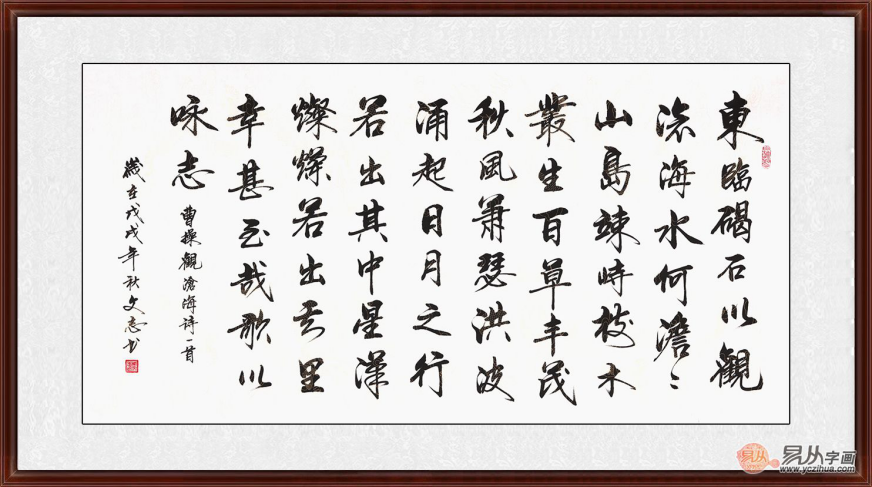 東臨碣石以觀
滄海水何澹〻
山島竦峙樹木
叢生百草丰茂
秋風蕭瑟洪波
涌起日月之行
若出其中星漢
燦爛若出其里
幸甚至哉歌以
咏志
曹操觀滄海诗一首
歲在戊戌年秋文志书
易从
易从字画
www.yczihua.com